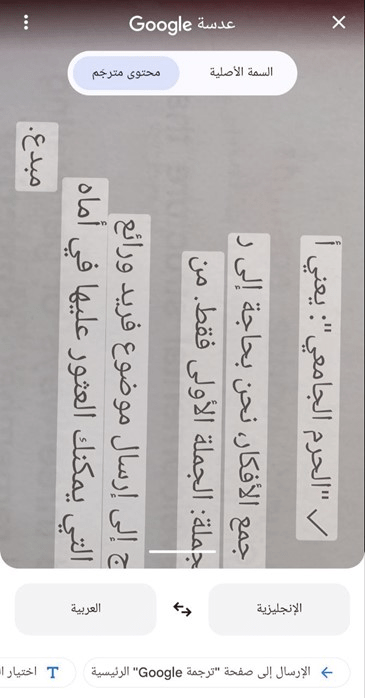 عدسة Google
السمة الأصلية
محتوى مترجَم
✓ "الحرم الجامعي": يعني أ
جمع الأفكار، نحن بحاجة إلى ر
جملة: الجملة الأولى فقط. من
ج إلى إرسال موضوع فريد ورائع
التي يمكنك العثور عليها في أماه
مبدع.
الإنجليزية
العربية
الإرسال إلى صفحة "ترجمة Google" الرئيسية
اختيار ال